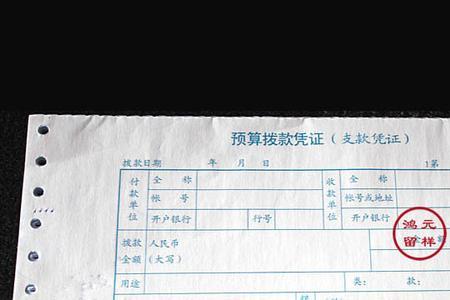 预算拨款凭证（支款凭证）
拨款日期 年 月 日 1第
付款单位 全称 收款单位 全称
帐号 帐号或地址
开户银行 行号 开户银行
拨款金额 人民币(大写)
鸿元留样
用途 类： 款：